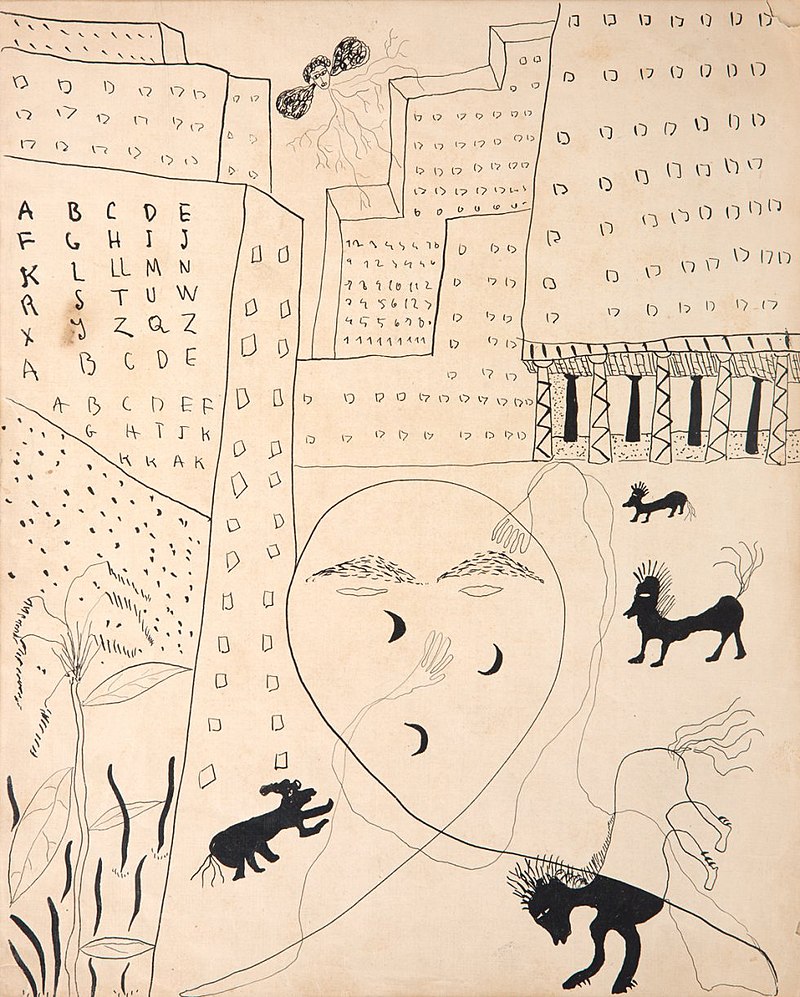 A B C D E
F G H I J
K L LL M N
R S T U W
X Y Z Q Z
A B C D E
A B C D E F
G H I J K
K K A K
1 2 3 4 5 4 7 8
9 1 2 3 4 5 6
7 8 9 10 11 2
3 4 5 6 12 3
4 5 6 7 8
1 1 1 1 1 1 1 1 1